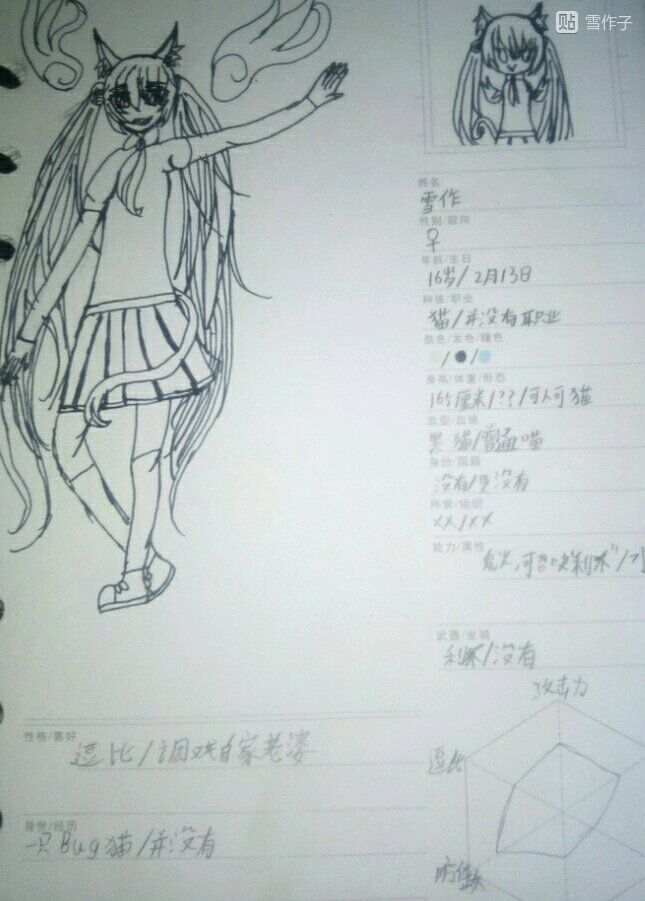 贴 雪作子
姓名
雪作
性别/取向
♀
年龄/生日
16岁/2月13日
种族/职业
猫/并没有职业
肤色/发色/瞳色
/ /
身高/体重/形态
165厘米/??/可人可猫
血型/血统
黑猫/普通喵
身份/国籍
没有/并没有
阵营/组织
XX/XX
能力/属性
武器/坐骑
/没有
攻击力
逗比
性格/喜好
逗比/调戏自家老婆
身世/经历
一只Bug猫/并没有